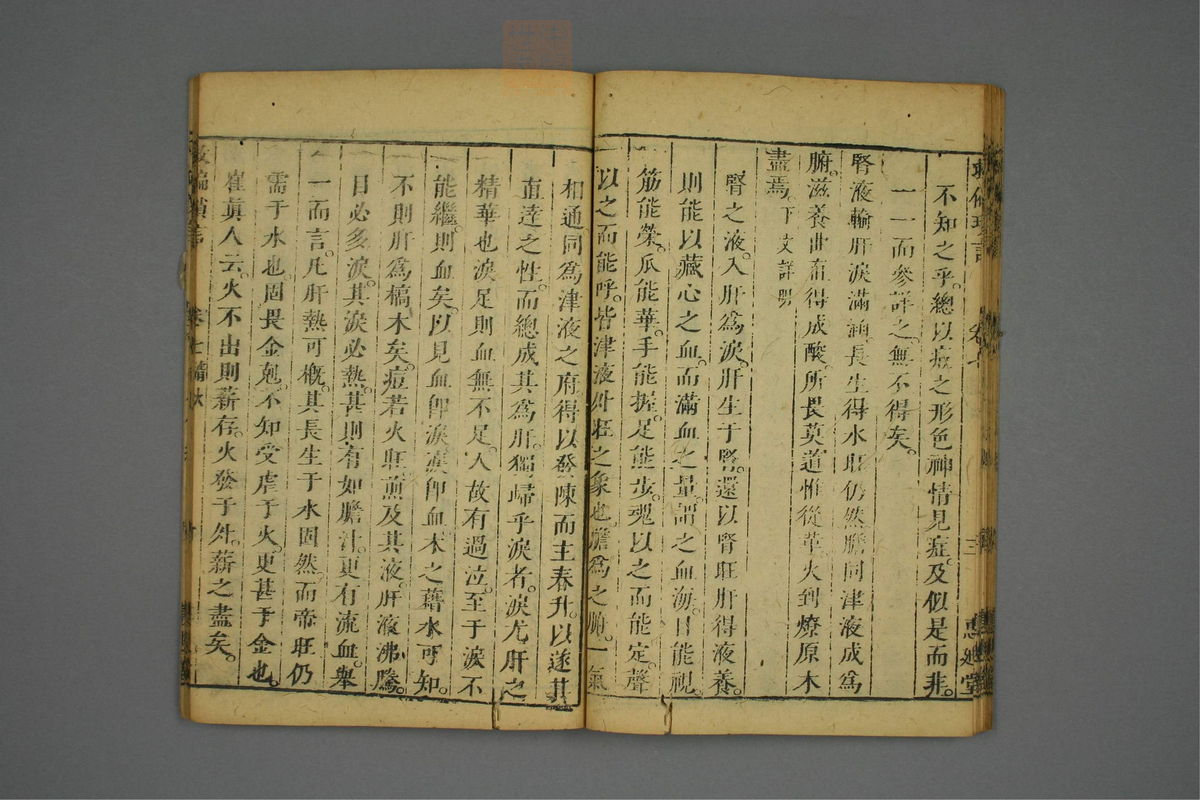 不知之乎。總以痘之形色神情見症。及似是而非。
一一而參詳之。無不得矣。
腎液輸肝淚滿涵長生得水旺仍然膽同津液成為
腑。滋養曲直得成酸。所畏莫道惟從革。火到燎原木
盡焉。下文詳明
腎之液。入肝為淚。肝生于腎。還以腎旺肝得液養。
則能以藏心之血。而滿血之量。謂之血海。目能視。
筋能榮。爪能華。手能握。足能步。魂以之而能定。聲
以之而能呼。皆津液升旺之象也。膽為之腑。一氣
相通同為津液之府得以發陳而主春升。以遂其
直達之性。而總成其為肝。獨歸乎淚者。淚尤肝之
精華也淚足則血無不足。人故有過泣。至于淚不
能繼。則血矣。以見血卽淚。淚卽血。木之藉水可知。
不則肝為槁木矣。痘若火旺。煎及其液。肝液沸騰。
目必多淚。其淚必熱。甚則有如膽汁。更有流血。舉
一而言。凡肝熱可概。其長生于水固然。而帝旺仍
需于水也。固畏金剋。不知受虐于火。更甚于金也。
崔真人云。火不出則薪存。火發于外。薪之盡矣。